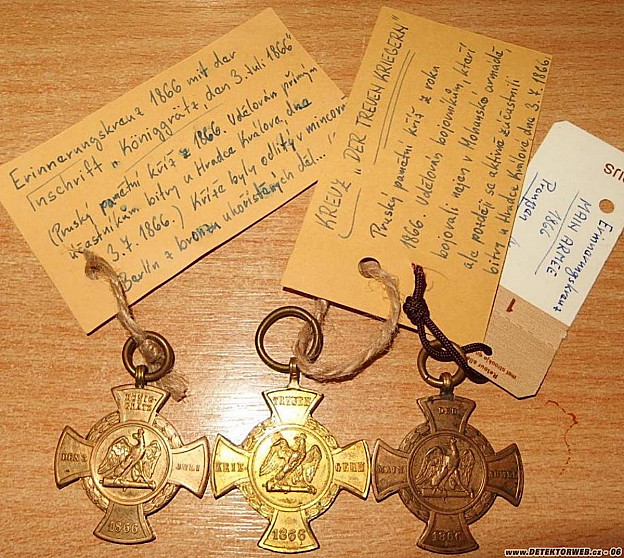 Erinnerungskreuz 1866 mit der
Inschrift „Königgrätz, den 3. Juli 1866"
(Pruský pamětní kříž z 1866. Udělován přímým
účastníkům bitvy u Hradce Králové, dne
3.7. 1866.) Kříže byly odlity v mincovn
Berlin z bronzu ukořistěných děl...
KREUZ „DER TREUEN KRIEGERN"
Pruský pamětní kříž z roku
1866. Udělován bojovníkům, kteří
bojovali nejen v Mohanské armádě,
ale později se aktivně zúčastnili
bitvy u Hradce Králové, dne 3.7. 1866
US
Erinnerungskreuz
MAIN ARMEE
1866
Preussen
1
Retour
KÖNIG-
GRÄTZ
DEN 3
JULI
1866
TREUEN
KRIE
GERN
1866
DER
MAIN
ARMEE
1866
www.DETEKTORWEB.cz - 06